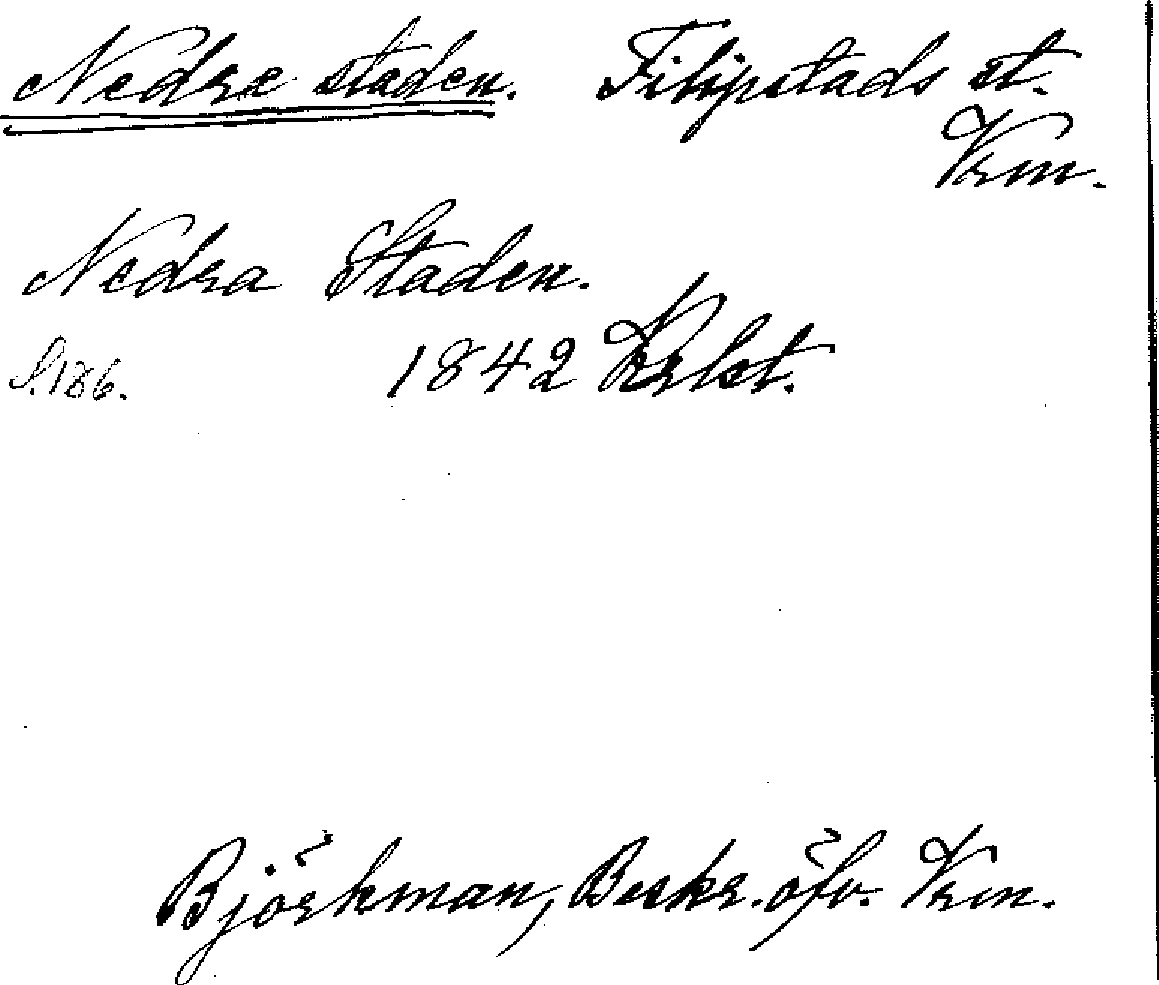 Nedre staden. Filipstads st.
Vrm.
Nedra Staden.
S. 186. 1842 Krlst.
Björkman, Beskr. öfv. Vrm.